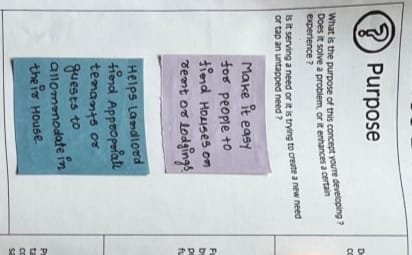 Purpose
What is the purpose of this concept you're developing ?
Does it solve a problem, or it enhances a certain
experience ?
Is it serving a need or it is trying to create a new need
or tap an untapped need ?
Make it easy
for people to
find Houses on
rent or lodgings.
Helps landlord
find Appropriate
tenants or
guests to
allomonodate in
their House.